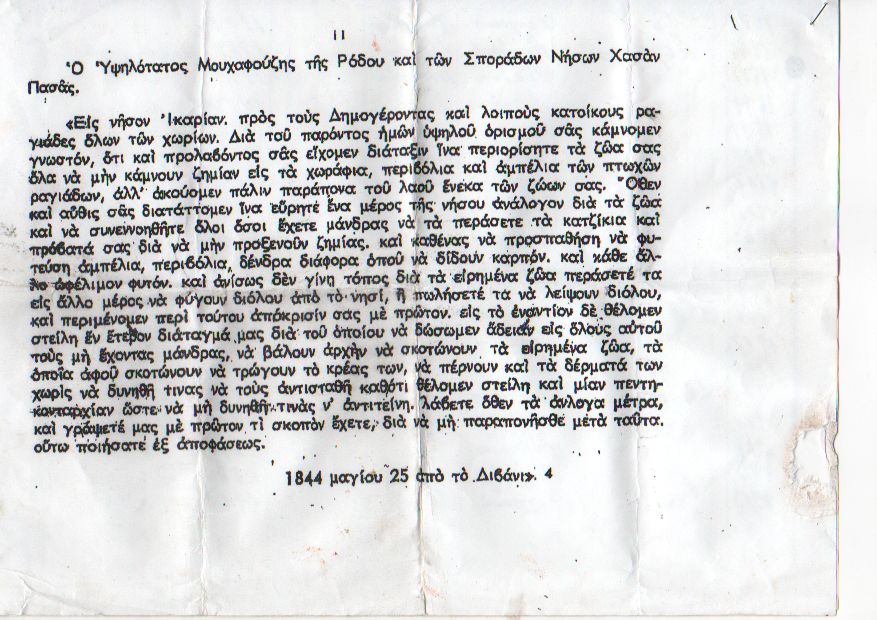 11
Ὁ Ὑψηλότατος Μουχαφούζης τῆς Ρόδου καὶ τῶν Σποράδων Νήσων Χασὰν
Πασᾶς.
«Εἰς νῆσον Ἰκαρίαν. πρὸς τοὺς Δημογέροντας καὶ λοιποὺς κατοίκους ρα-
γιάδες ὅλων τῶν χωρίων. Διὰ τοῦ παρόντος ἡμῶν ὑψηλοῦ ὁρισμοῦ σᾶς κάμνομεν
γνωστόν, ὅτι καὶ προλαβόντος σᾶς εἴχομεν διάταξιν ἵνα περιορίσητε τὰ ζῶα σας
ὅλα νὰ μὴν κάμνουν ζημίαν εἰς τὰ χωράφια, περιβόλια καὶ ἀμπέλια τῶν πτωχῶν
ραγιάδων, ἀλλ' ἀκούομεν πάλιν παράπονα τοῦ λαοῦ ἕνεκα τῶν ζώων σας. Ὅθεν
καὶ αὖθις σᾶς διατάττομεν ἵνα εὕρητε ἕνα μέρος τῆς νήσου ἀνάλογον διὰ τὰ ζῶα
καὶ νὰ συνεννοηθῆτε ὅλοι ὅσοι ἔχετε μάνδρας νὰ τὰ περάσετε τὰ κατζίκια καὶ
πρόβατά σας διὰ νὰ μὴν προξενοῦν ζημίας. καὶ καθένας νὰ προσπαθήση νὰ φυ-
τεύση ἀμπέλια, περιβόλια, δένδρα διάφορα ὁποῦ νὰ δίδουν καρπόν. καὶ κάθε ἄλ-
λο ὠφέλιμον φυτόν. καὶ ἀνίσως δὲν γίνη τόπος διὰ τὰ εἰρημένα ζῶα περάσετέ τα
εἰς ἄλλο μέρος νὰ φύγουν διόλου ἀπὸ τὸ νησί, ἢ πωλήσετέ τα νὰ λείψουν διόλου,
καὶ περιμένομεν περὶ τούτου ἀπόκρισίν σας μὲ πρῶτον. εἰς τὸ ἐναντίον δὲ θέλομεν
στείλη ἓν ἕτερον διάταγμά μας διὰ τοῦ ὁποίου νὰ δώσωμεν ἄδειαν εἰς ὅλους αὐτοῦ
τοὺς μὴ ἔχοντας μάνδρας, νὰ βάλουν ἀρχὴν νὰ σκοτώνουν τὰ εἰρημένα ζῶα, τὰ
ὁποῖα ἀφοῦ σκοτώνουν νὰ τρώγουν τὸ κρέας των, νὰ πέρνουν καὶ τὰ δέρματά των
χωρὶς νὰ δυνηθῆ τινας νὰ τοὺς ἀντισταθῆ καθότι θέλομεν στείλη καὶ μίαν πεντη-
κονταρχίαν ὥστε νὰ μὴ δυνηθῆ τινὰς ν' ἀντιτείνη. λάβετε ὅθεν τὰ ἀνλογα μέτρα,
καὶ γράψετέ μας μὲ πρῶτον τὶ σκοπὸν ἔχετε, διὰ νὰ μὴ παραπονῆσθε μετὰ ταῦτα.
οὕτω ποιήσατε ἐξ ἀποφάσεως.
1844 μαγίου 25 ἀπὸ τὸ Διβάνι». 4